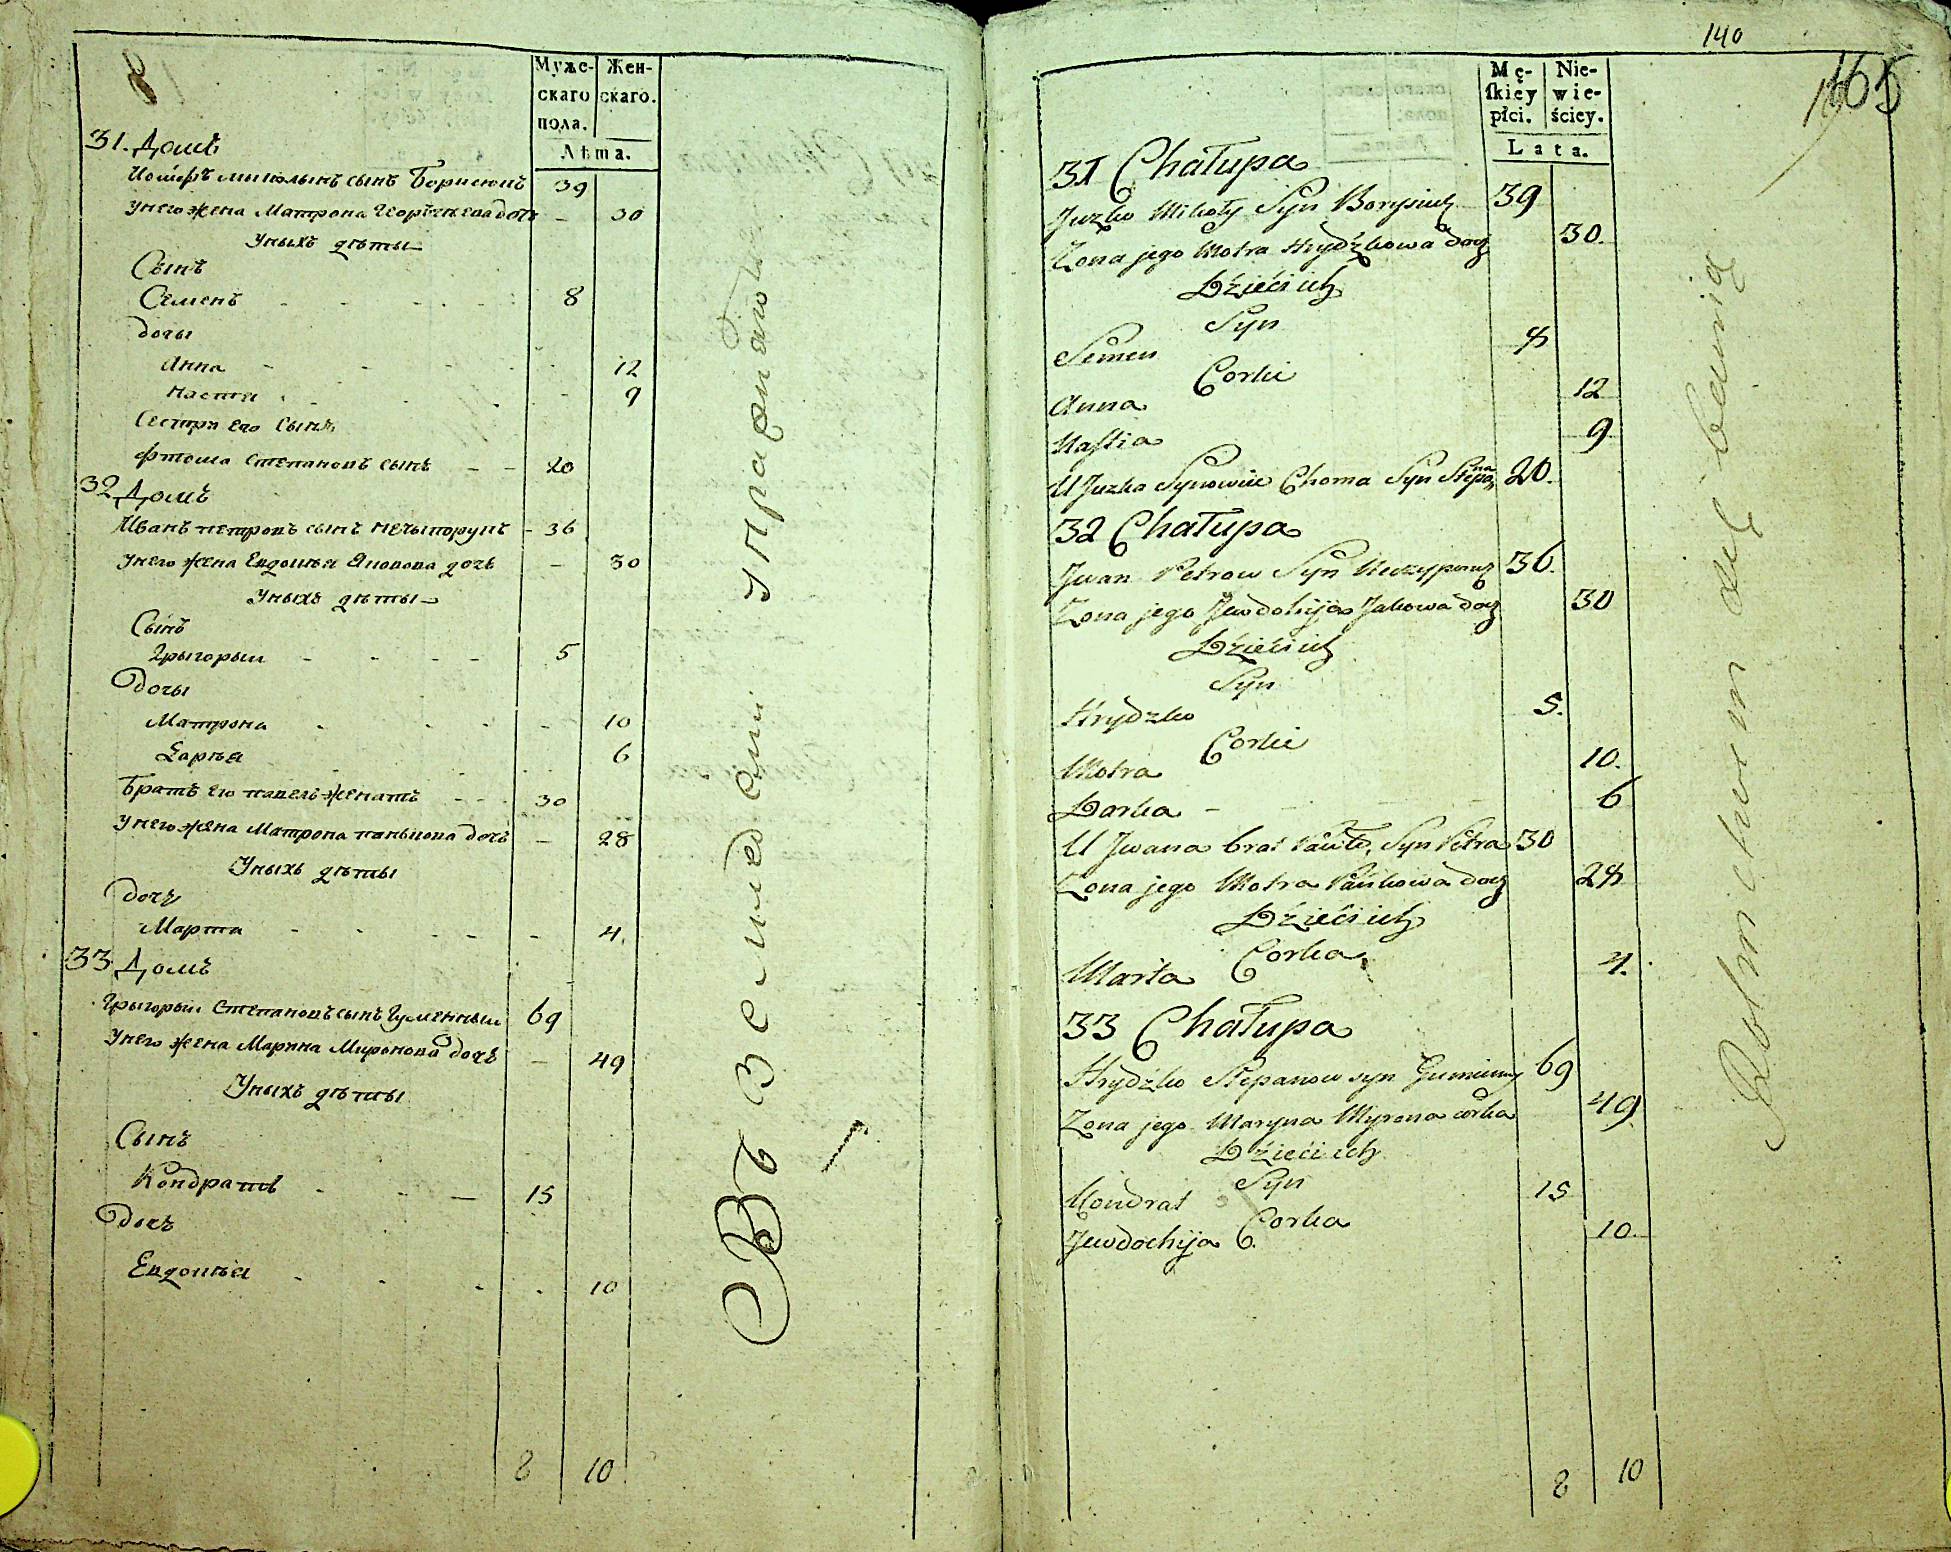 Муже-
скаго
пола.
Жен-
скаго.
Лѣта.
31. Домъ
Иосифъ Мыколынъ сынъ Борисюкъ 39
У него жена Матрона дочь – 30
У ныхъ дѣты
Сынъ
Семенъ 8
Дочы
Анна 12
Настя 9
Сестры его сынъ
Фтома Степановъ сынъ 20
32 Домъ
Иванъ Петровъ сынъ Нечыпорукъ – 36
У него жена Евдокия Яковова дочь – 30
У ныхъ дѣты
Сынъ
Грыгорый 5
Дочы
Матрона 10
Дарья 6
Братъ его Павелъ женатъ 30
У него жена Матрона Панькова дочь – 28
У ныхъ дѣты
Дочь
Марта 4.
33 Домъ
Грыгорый Степановъ сынъ Гуменный 69
У него жена Марина Миронова дочь – 49
У ныхъ дѣты
Сынъ
Кондратъ 15
Дочь
Евдокия 10
8 10
Въ земледелии
140
165
Mę-
skiey
płci.
Nie-
wie-
ściey.
Lata.
31 Chałupa
Juzko Mikoły Syn Borysiuk 39
Zona jego Motra Hrydźkowa docz 30.
Dźieci ich
Syn
Semen 8
Corki
Anna 12
Nastia 9
U Juzka Synowiec Choma Syn Stepana 20.
32 Chałupa
Jwan Petrow Syn Neczyporuk 36.
Zona jego Jewdokija Jakowa docz 30
Dźieci ich
Syn
Hrydzko 5.
Corki
Motra 10.
Darka – 6
U Jwana brat Pawło, Syn Petra 30
Zona jego Motra Pańkowa docz 28
Dźieci ich
Corka
Marta 4.
33 Chałupa
Hrydźko Stepanow syn Gumienny 69
Zona jego Maryna Myrona corka 49.
Dźieci ich
Syn
Kondrat 15
Corka
Jewdochija 10.
8 10
Rolnictwem